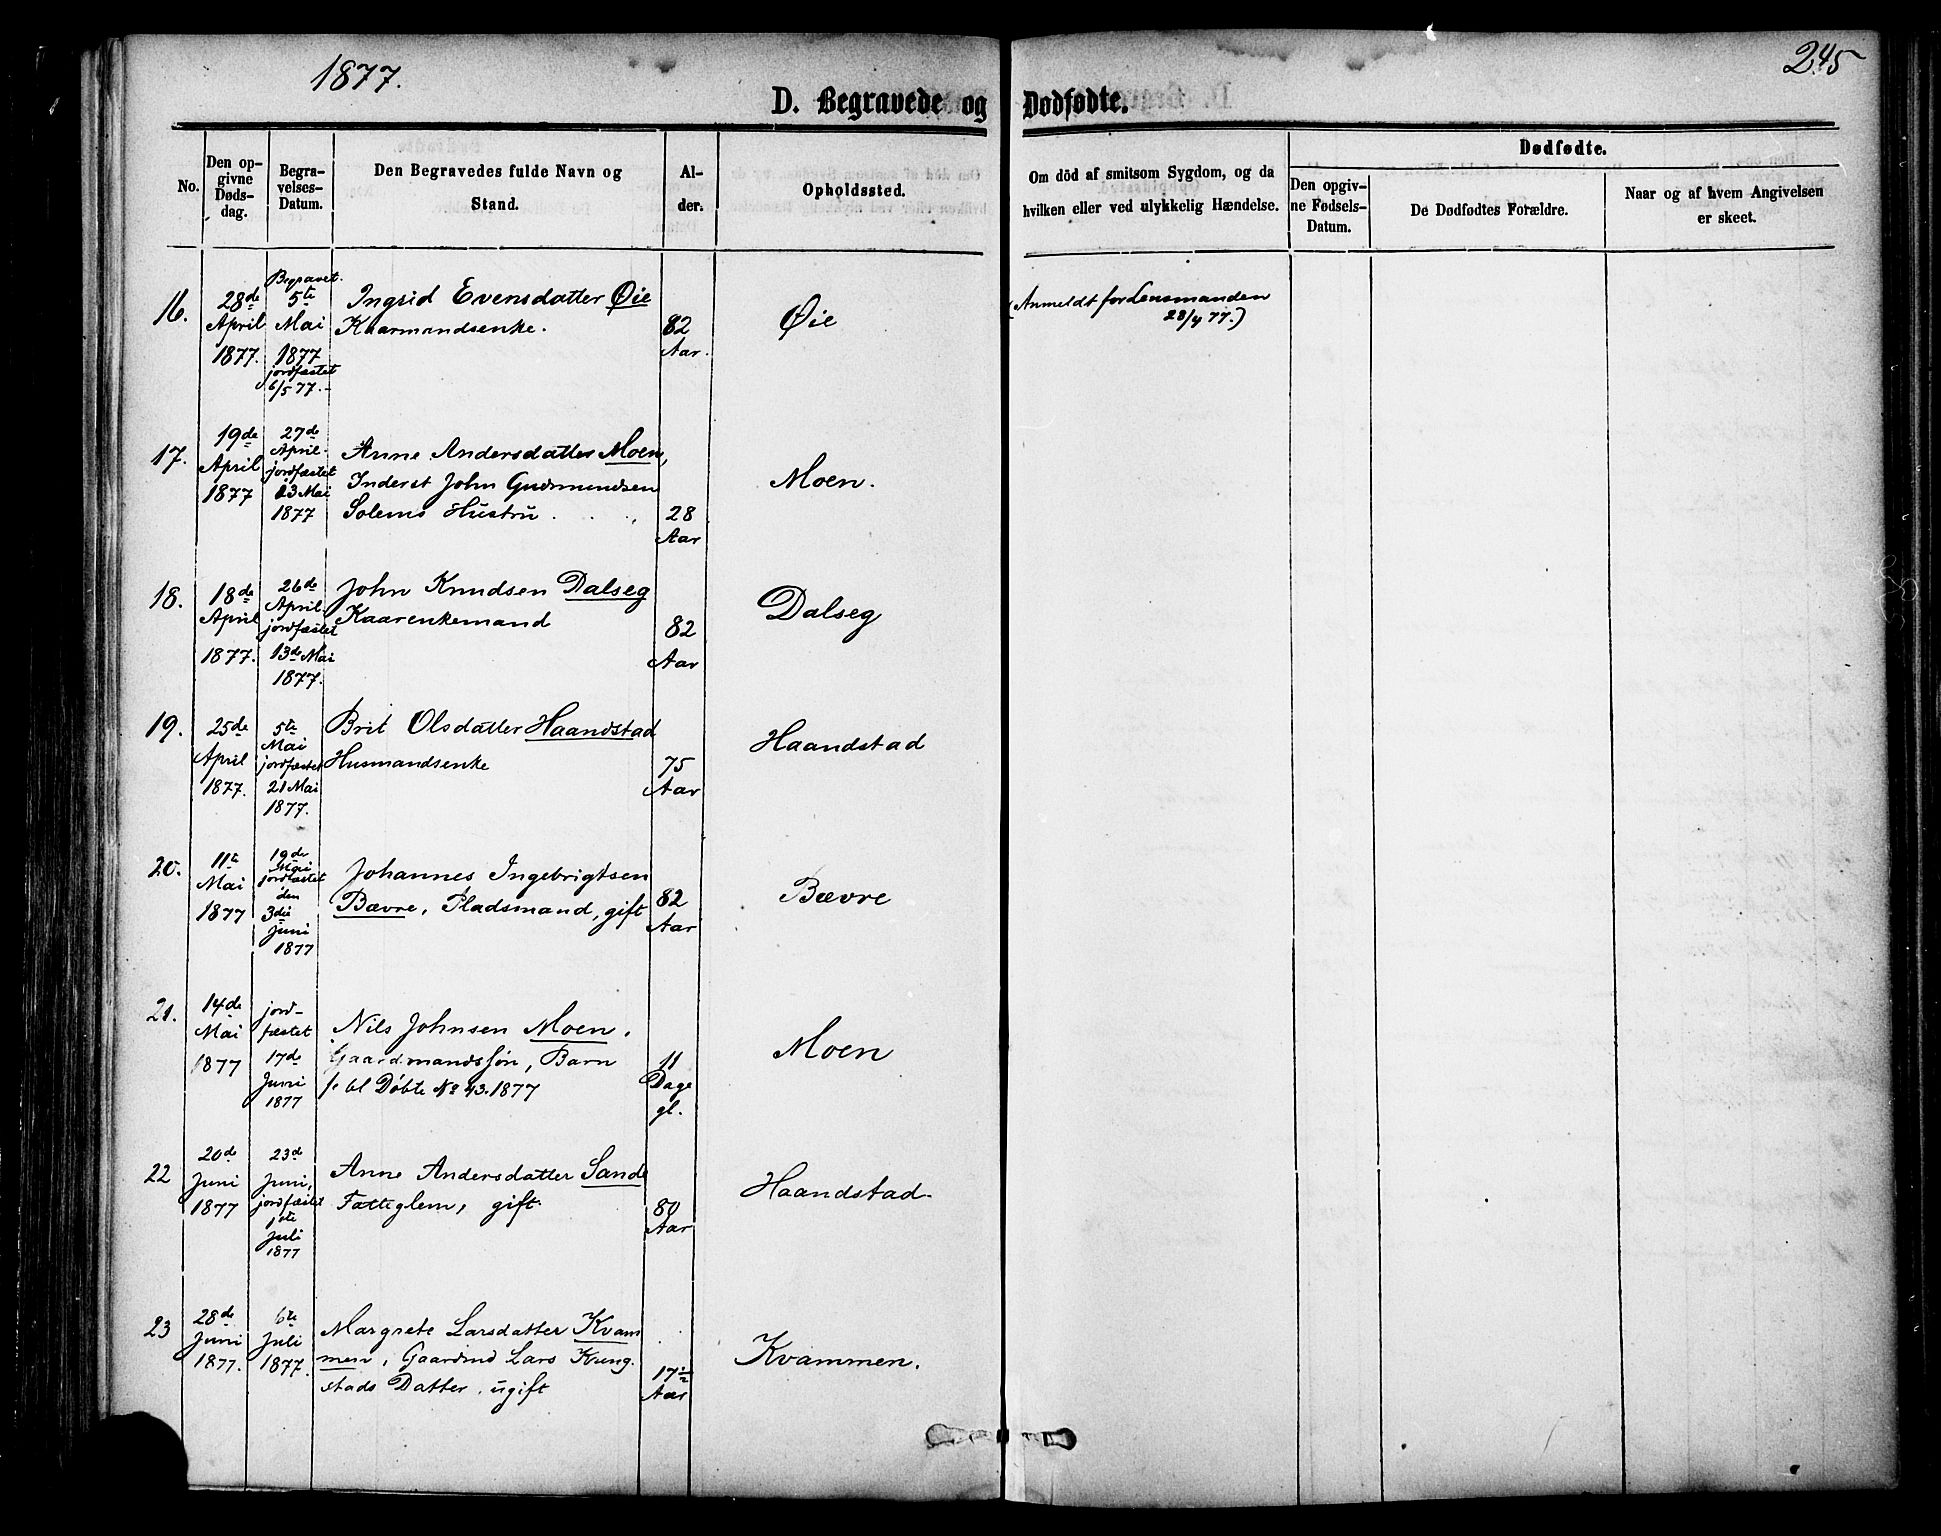 1877.
245
D. Begravede og Dødfødte.
No.
Den op-
givne
Døds-
dag.
Begra-
velses-
Datum.
Den Begravedes fulde Navn og
Stand.
Al-
der.
Opholdssted.
Om död af smitsom Sygdom, og da
hvilken eller ved ulykkelig Hændelse.
Dødfødte.
Den opgiv-
ne Fødsels-
Datum.
De Dødfødtes Forældre.
Naar og af hvem Angivelsen
er skeet.
16.
28de
April
1877.
Begravet.
5te
Mai
1877
jordfæstet
6/5 77.-
Ingrid Evensdatter Øie
Kaarmandsenke.
82
Aar.
Øie
(Anmeldt for Lensmanden
28/4 77.)
17.
19de
April
1877
27de
April.
jordfæstet
13 Mai
1877
Anne Andersdatter Moen,
Inderst John Gudmundsen
Solems Hustru
28
Aar
Moen.
18.
18de
April
1877.
26de
April
jordfæstet
13de Mai
1877.
John Knudsen Dalseg
Kaarenkemand
82
Aar
Dalseg
19.
25de
April
1877.
5te
Mai
jordfæstet
21 Mai
1877.
Brit Olsdatter Haandstad
Husmandsenke
75
Aar
Haandstad
20.
11te
Mai
1877
19de
Mai
jordfæstet
den
3die
Juni
1877
Johannes Ingebrigtsen
Bævre, Pladsmand, gift
82
Aar
Bævre
21.
14de
Mai
1877
jord-
fæstet
17de
Juni
1877
Nils Johnsen Moen.
Gaardmandssøn, Barn
Døbte No 43. 1877
11
Dage
gl.
Moen
22
20de
Juni
1877
23de
Juni,
jordfæstet
1ste
Juli
1877
Anne Andersdatter Sande
Fatteglem, gift.
80
Aar
Haandstad
23
28de
Juni
1877.
6te
Juli
1877.
Margrete Larsdatter Kvam
men, Gaardmd Lars Kreng-
stads Datter, ugift
17 1/2
Aar
Kvammen.